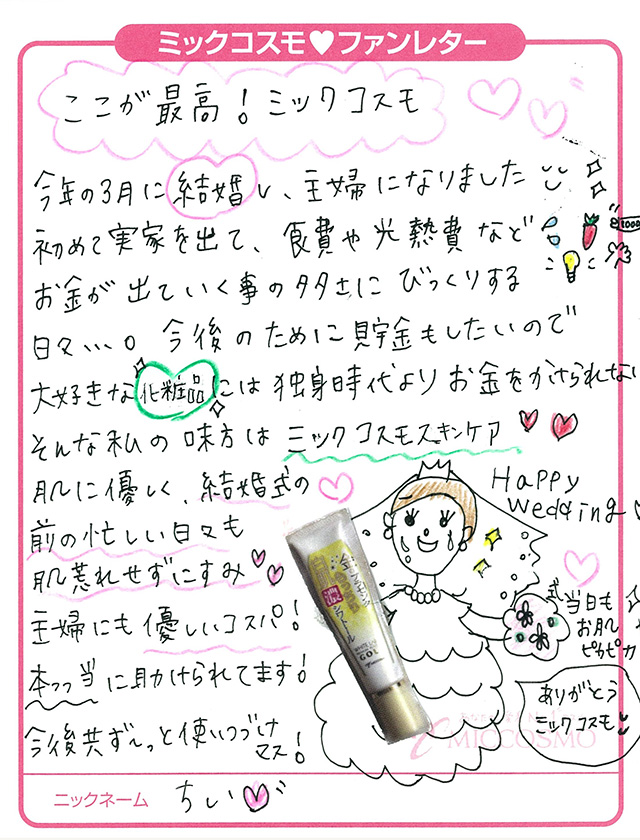 ミックコスモ♥ファンレター
ここが最高！ミックコスモ
今年の3月に結婚し、主婦になりました
初めて実家を出て、食費や光熱費など
お金が出ていく事の多さにびっくりする
日々…。今後のために貯金もしたいので
大好きな化粧品には独身時代よりお金をかけられない
そんな私の味方はミックコスモスキンケア
肌に優しく、結婚式の
前の忙しい日々も
肌荒れせずにすみ
主婦にも優しいコスパ！
本っっ当に助けられてます！
今後共ず〜っと使いつづけ
マス！
Happy
Wedding
式当日も
お肌
ピカピカ
ありがとう
ミックコスモ
MICCOSMO
ニックネーム ちい